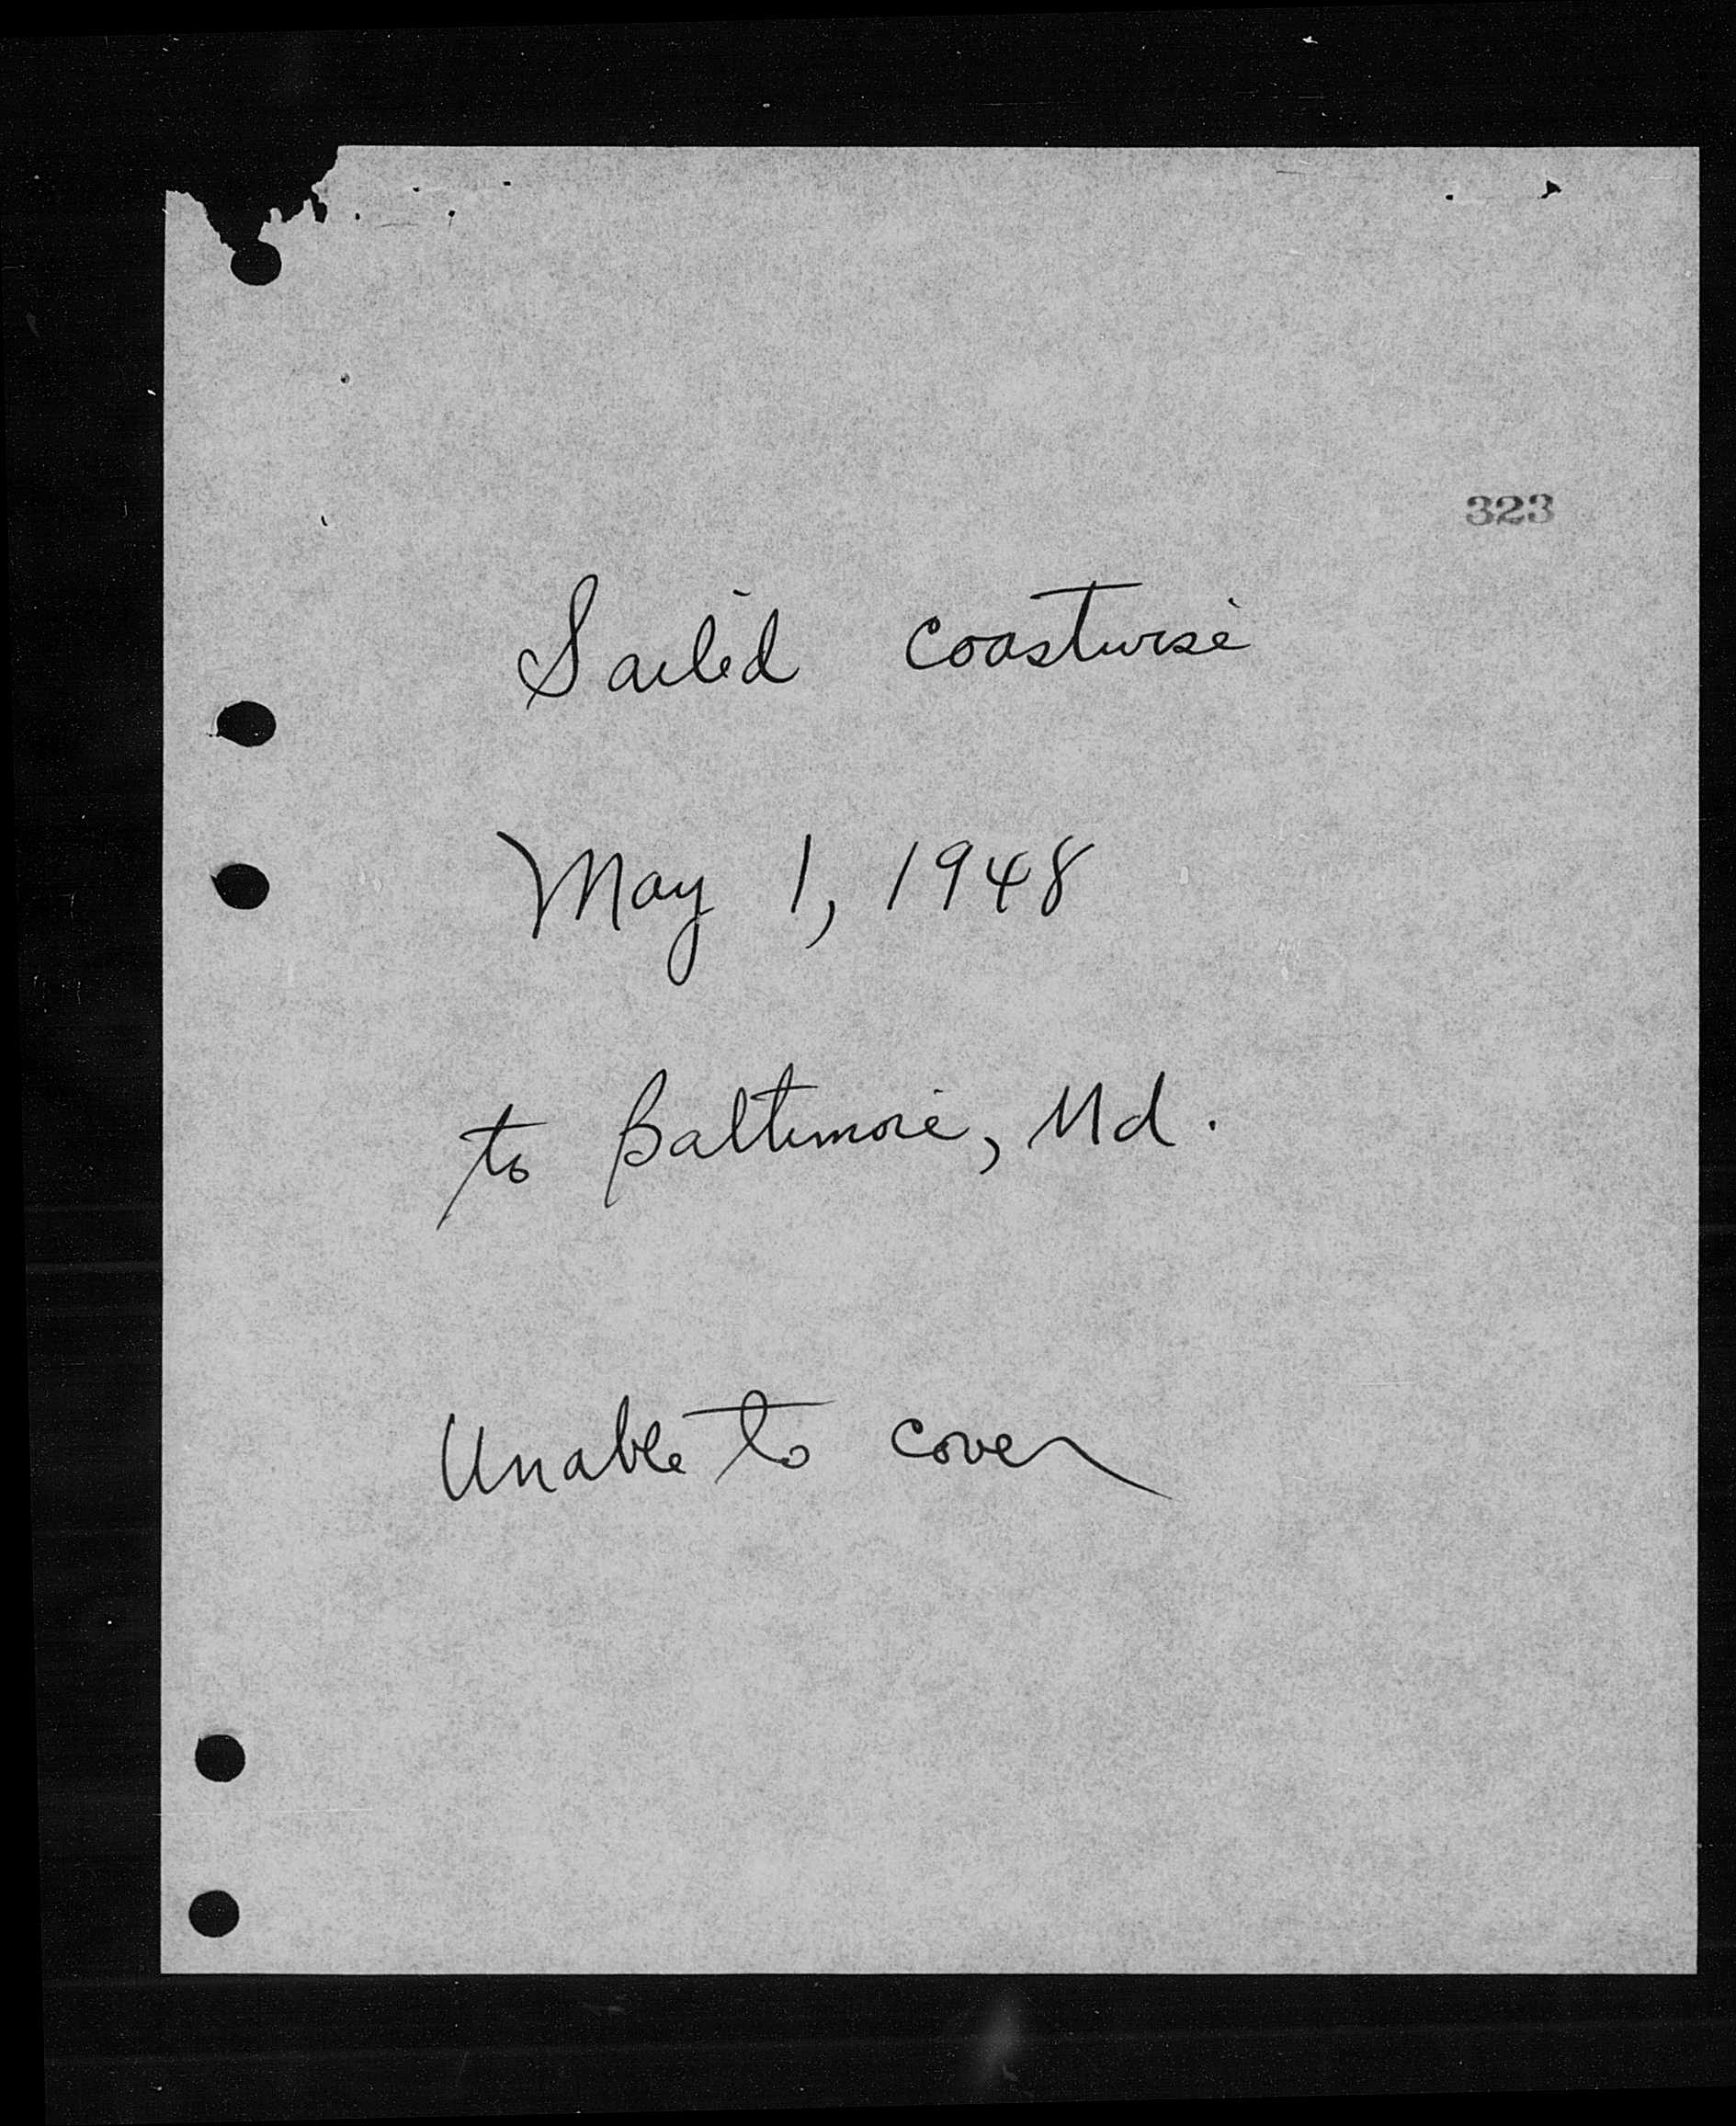 323
Sailed coastwise
May 1, 1948
to Baltimore, Md.
Unable to cover